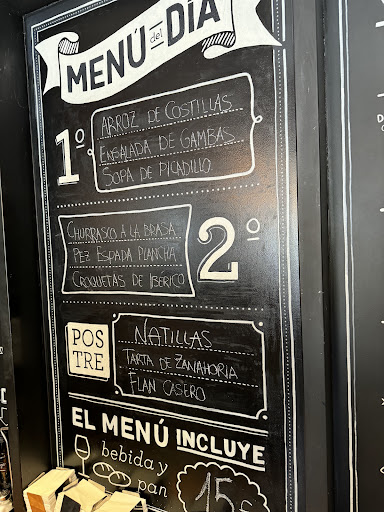 MENÚ del DÍA
1º
ARROZ DE COSTILLAS
ENSALADA DE GAMBAS
SOPA DE PICADILLO
CHURRASCO A LA BRASA
PEZ ESPADA PLANCHA
CROQUETAS DE IBÉRICO
2º
POSTRE
NATILLAS
TARTA DE ZANAHORIA
FLAN CASERO
EL MENÚ INCLUYE
bebida y
pan
15€